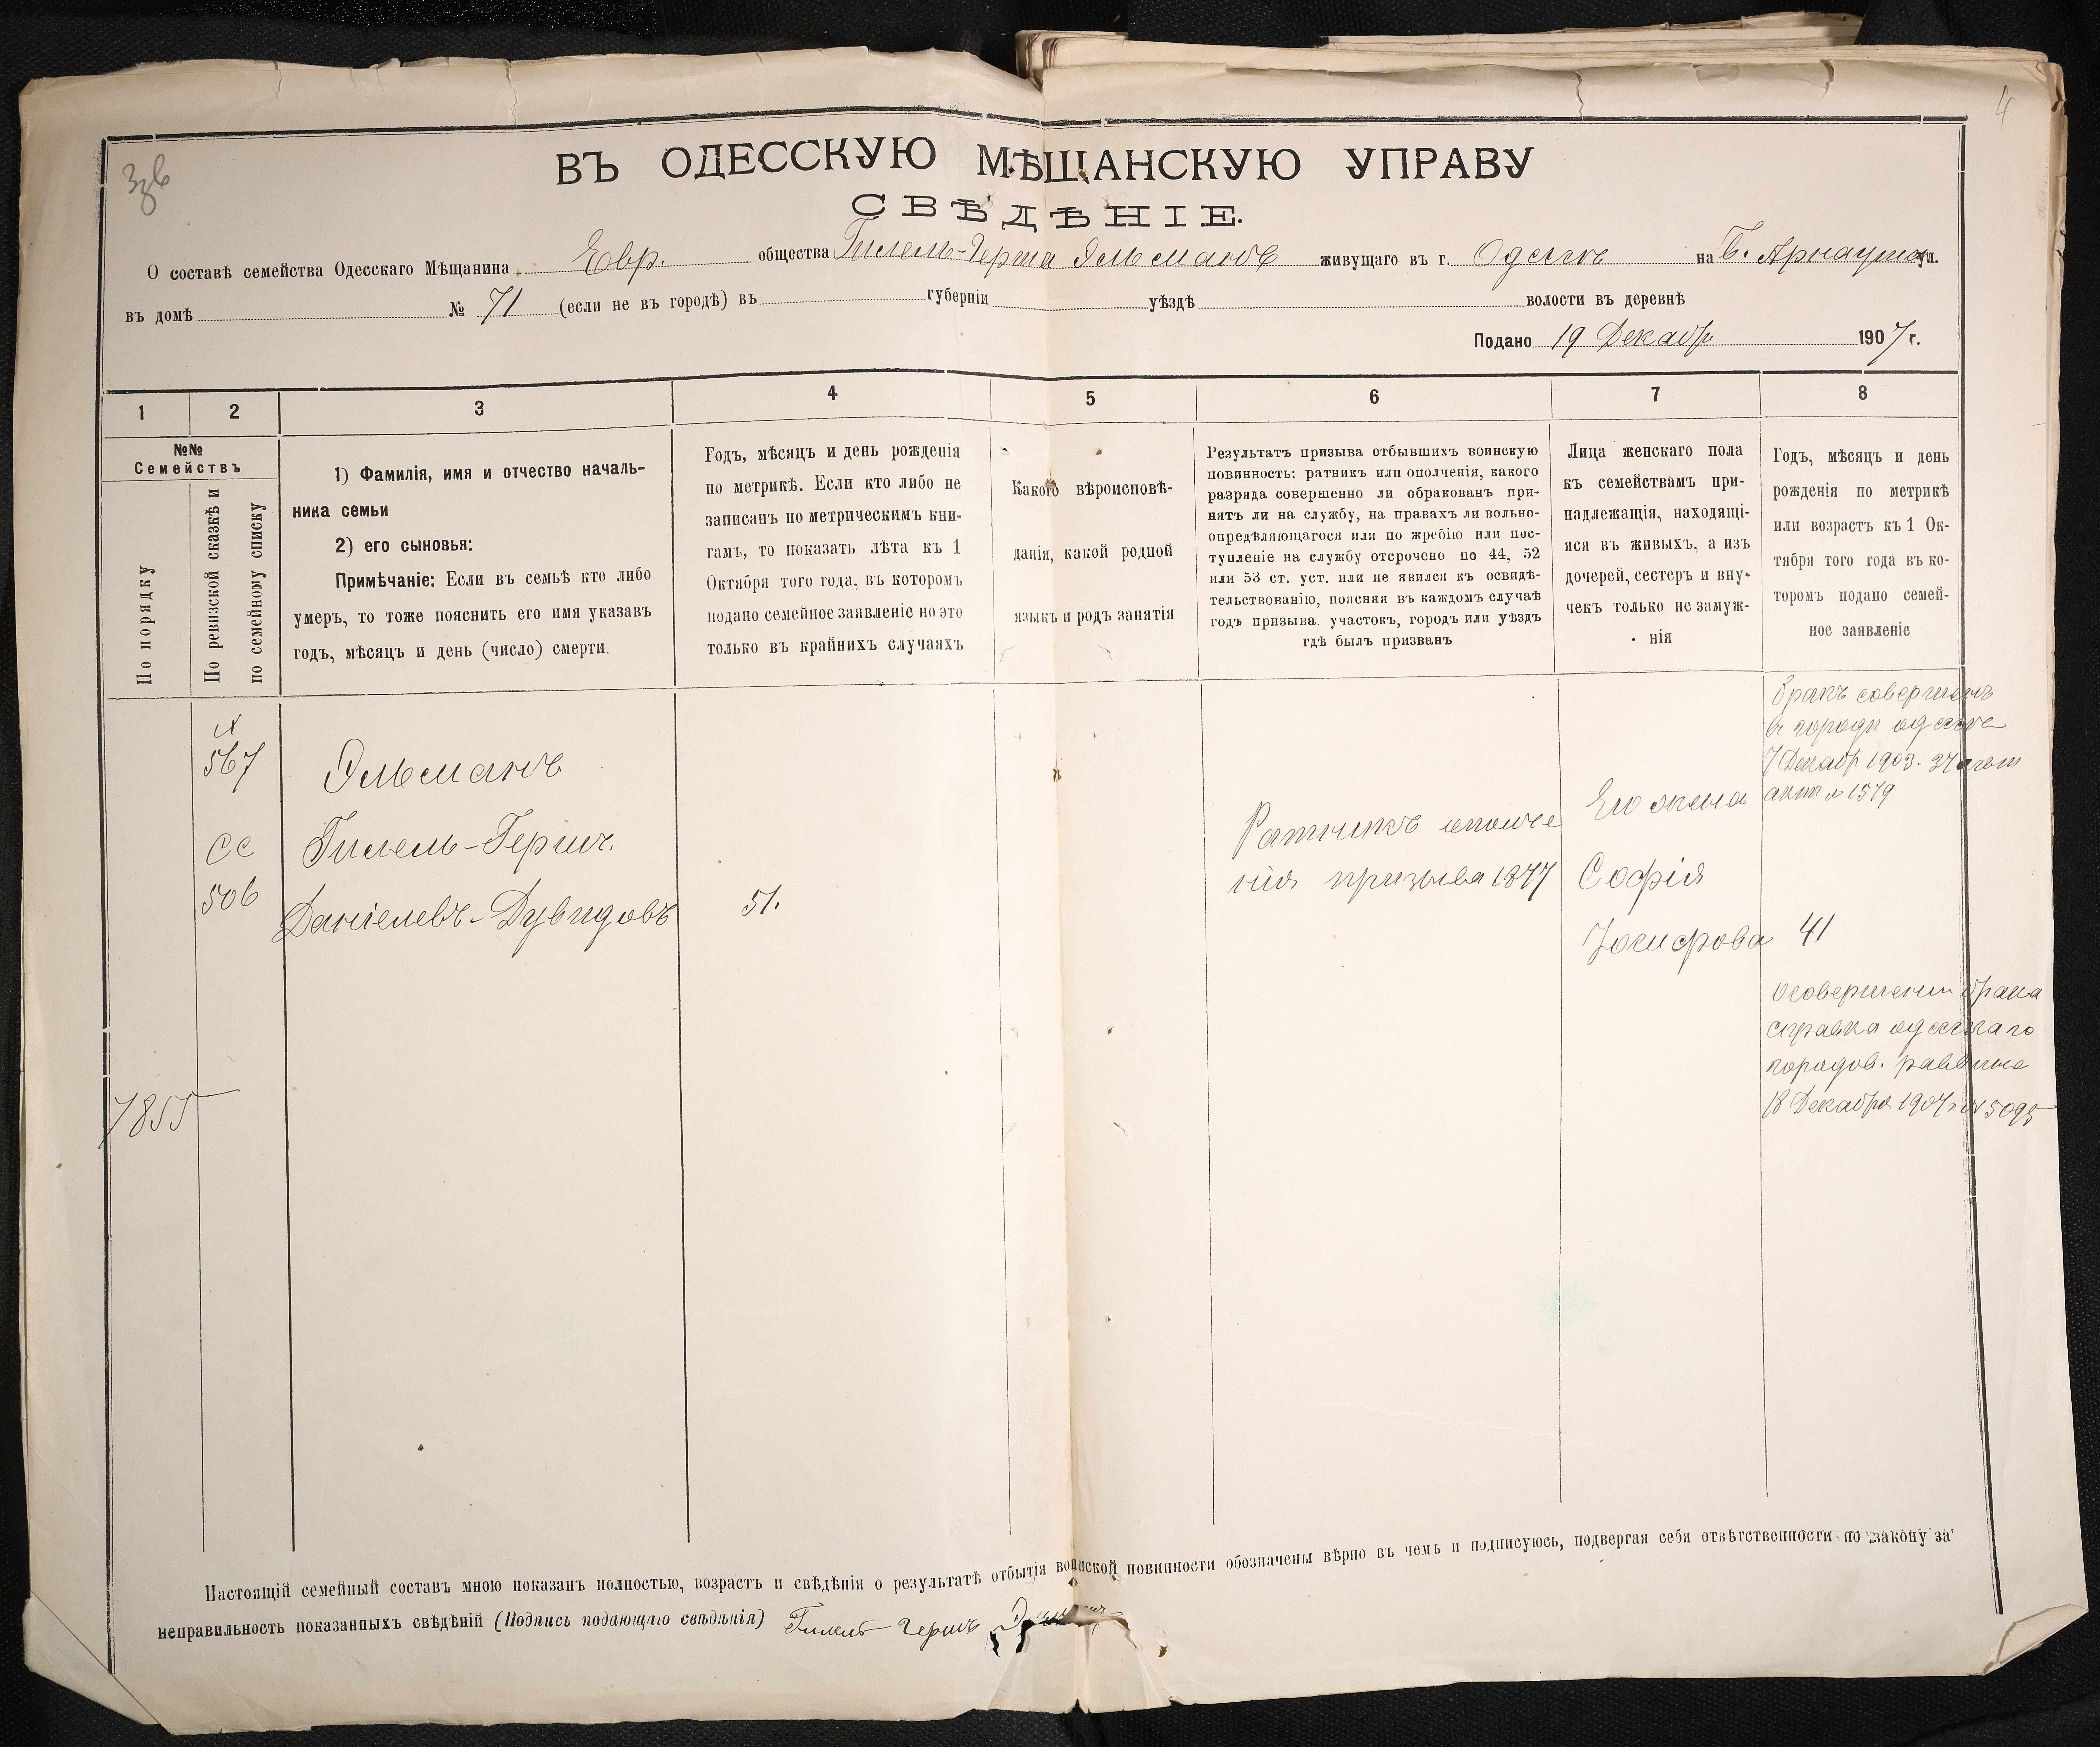 4
ВЪ ОДЕССКУЮ МѢЩАНСКУЮ УПРАВУ
СВѢДѢНІЕ.
О составѣ семейства Одесскаго Мѣщанина Евр. общества Гилель-Герша Эльманъ живущаго въ г. Одессѣ на Б. Арнаутск ул.
въ домѣ № 71 (если не въ городѣ) въ губерніи уѣздѣ волости въ деревнѣ
Подано 19 Декабр 1907 г.
1 2 3 4 5 6 7 8
№№
Семействъ
По порядку
По ревизской сказкѣ и
по семейному списку
1) Фамилія, имя и отчество началь-
ника семьи
2) его сыновья:
Примѣчаніе: Если въ семьѣ кто либо
умеръ, то тоже пояснить его имя указавъ
годъ, мѣсяцъ и день (число) смерти.
Годъ, мѣсяцъ и день рожденія
по метрикѣ. Если кто либо не
записанъ по метрическимъ кни-
гамъ, то показать лѣта къ 1
Октября того года, въ которомъ
подано семейное заявленіе но это
только въ крайнихъ случаяхъ
Какого вѣроисповѣ-
данія, какой родной
языкъ и родъ занятія
Результатъ призыва отбывшихъ воинскую
повинность: ратникъ или ополченія, какого
разряда совершенно ли обракованъ при-
нятъ ли на службу, на правахъ ли вольно-
опредѣляющагося или по жребію или пос-
тупленіе на службу отсрочено по 44, 52
или 53 ст. уст. или не явился къ освидѣ-
тельствованію, поясняя въ каждомъ случаѣ
годъ призыва участокъ, городъ или уѣздъ
гдѣ былъ призванъ
Лица женскаго пола
къ семействамъ при-
надлежащія, находящі-
яся въ живыхъ, а изъ
дочерей, сестеръ и вну-
чекъ только не замуж-
нія
Годъ, мѣсяцъ и день
рожденія по метрикѣ
или возрастъ къ 1 Ок-
тября того года въ ко-
торомъ подано семей-
ное заявленіе
567
СС
506
7855
Эльманъ
Гилель-Гершъ
Даніелевъ-Дувидовъ
51.
Ратникъ ополче
нія призыва 1877
Его жена
Софія
Іосифова
бракъ совершенъ
в городѣ одессѣ
7 Декабр 1903. актъ
акт № 1579
41
о совершеніи брака
справка одесскаго
городов. раввина
18 Декабря 1907 г № 5095
Настоящій семейный составъ мною показанъ полностью, возрастъ и свѣдѣнія о результатѣ отбытія воинской повинности обозначены вѣрно въ чемъ и подписуюсь, подвергая себя отвѣтственности по закону за
неправильность показанныхъ свѣдѣній (Подпись подающаго свѣдѣнія) Гилель Гершъ